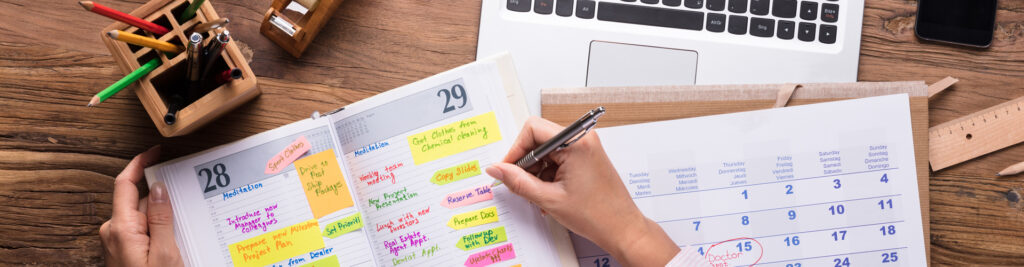 28
Meditation
Send Clothes
Drive to
Post
Ship
Parcels
Introduce new
Manager to
colleagues
Set Priorities
Prepare Milestone
Project Plan
from dealer
29
Meditation
Get Clothes from
Chemical cleaning
Weekly team
meeting
Copy Slides
New Project
Presentation
Reserve Table
Lunch with new
Investors
Prepare Docs
Real Estate
Agent Appt.
Followup
with Dev
Dentist Appt.
Update charts
Tuesday
Wednesday
Thursday
Friday
Saturday
Sunday
Martes
Miércoles
Jueves
Viernes
Sábado
Domingo
Mardi
Mercredi
Jeudi
Vendredi
Samedi
Dimanche
1 2 3 4
7 8 9 10 11
12 14 15 16 17 18
Doctor
Appt
22 23 24 25